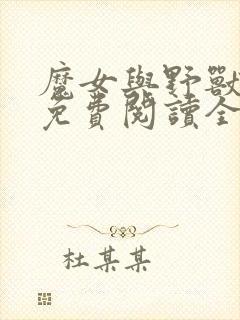 魔女與野獸
免費閱讀全
杜某某